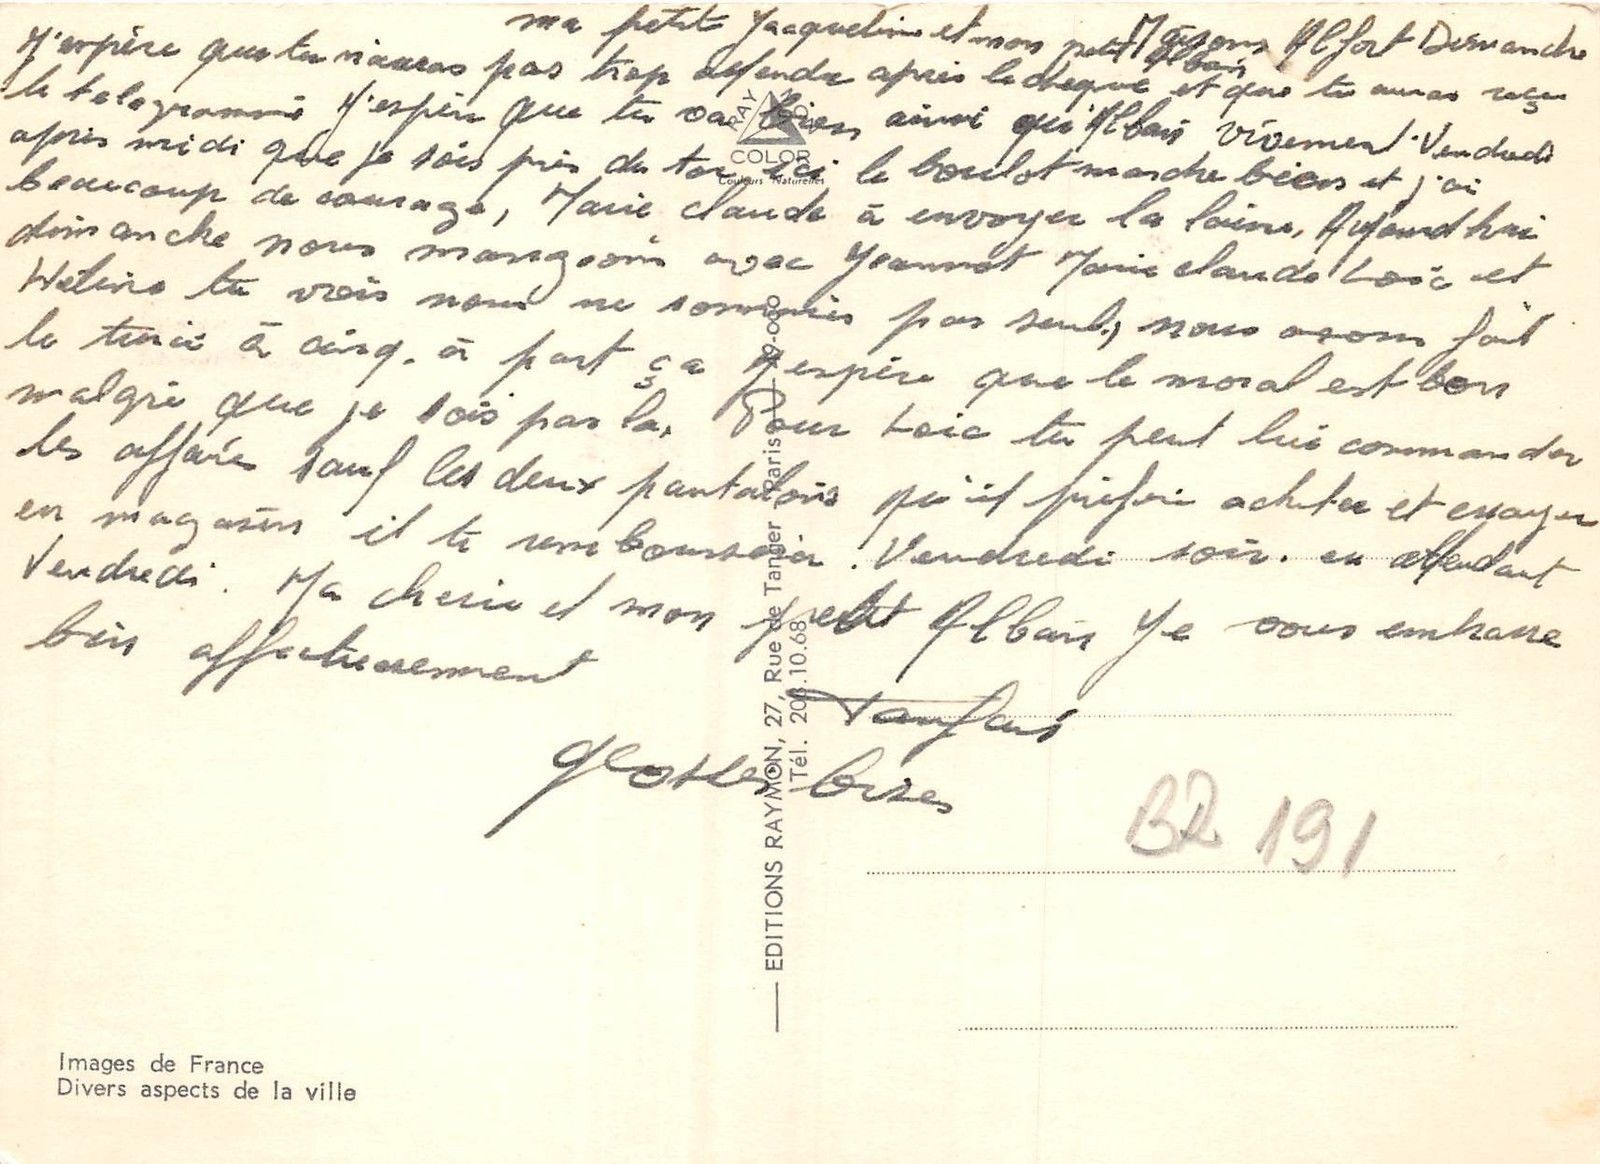 Maisons Alfort Dimanche
ma petite Jacqueline et mon petit Albain
J'espère que tu n'auras pas trop attendu après le chèque et que tu auras reçu
le telegramme J'espère que tu va bien ainsi qu'Albain vivement Vendredi
après midi que je sois près de toi ici le boulot marche bien et j'ai
beaucoup de courage, Marie claude à envoyer la laine, Aujourd'hui
dimanche nous mangeons avec Jeannot Marie claude Loïc et
tu vois nous ne sommes pas seul, nous avons fait
le à cinq. à part ça J'espère que le moral est bon
malgré que je sois pas la. Pour Loic tu peut lui commander
les affaires sauf les deux pantalons qu'il préfère acheter et essayer
en magasin il te remboursera Vendredi soir. en attendant
Vendredi. Ma cherie et mon petit Albain Je vous embrasse
bien affectueusement
Grosses bises
RAY
COLOR
Couleurs Naturelles
EDITIONS RAYMON, 27, Rue de Tanger Paris 19
Tél. 208.10.68
BR 191
Images de France
Divers aspects de la ville